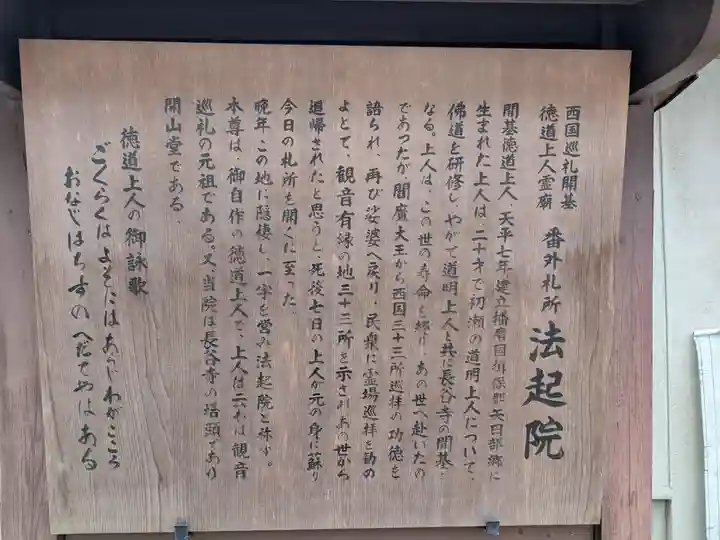 西国巡礼開基
徳道上人霊廟
番外札所
法起院
開基徳道上人、天平七年建立播磨国揖保郡矢田部郷に
生まれた上人は、二十才で初瀬の道明上人について、
佛道を研修し、やがて道明上人と共に長谷寺の開基と
なる。上人は、この世の寿命を終り、あの世へ赴いたの
であつたが閻魔大王から西国三十三所巡拝の功徳を
語られ、再び娑婆へ戻り、民衆に霊場巡拝を勧め
よとて、観音有縁の地三十三所を示されあの世から
追帰されたと思うと、死後七日の上人が元の身に蘇り
今日の札所を開くに至った。
晩年この地に隠棲し、一宇を営み法起院と称す。
本尊は、御自作の徳道上人で、上人は云わば観音
巡礼の元祖である。又、当院は長谷寺の塔頭であり
開山堂である。
徳道上人の御詠歌
ごくらくはよそにはあらじわがこころ
おなじはちすのへだてやはある